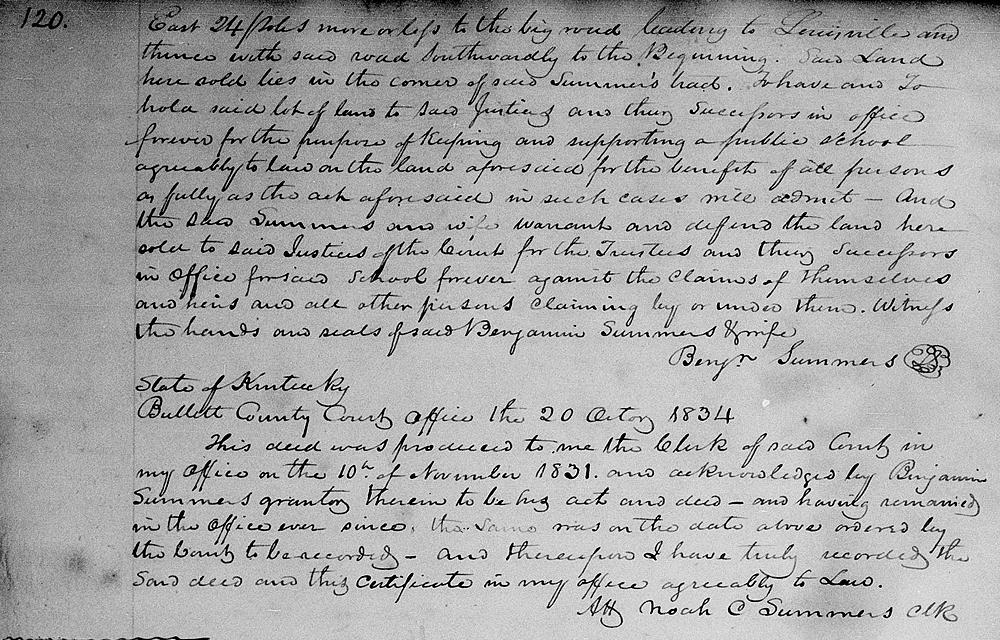 120.
East 24 poles more or less to the big road leading to Louisville and
thence with said road Southwardly to the Beginning. Said Land
here sold lies in the corner of said Summer's tract. To have and To
hold said lot of land to said Justices and their Successors in office
forever for the purpose of Keeping and supporting a public school
agreeably to law on the land aforesaid for the benefit of all persons
as fully as the act aforesaid in such cases will admit – And
the said Summers and wife warrant and defend the land here
sold to said Justices of the Court for the Trustees and their Successors
in Office for said School forever against the Claims of themselves
and heirs and all other persons Claiming by or under them. Witness
the hands and seals of said Benjamin Summers & wife
Benjn Summers
State of Kentucky
Bullitt County Court Office the 20 Octor 1834
This deed was produced to me the Clerk of said Court in
my Office on the 10th of November 1831. and acknowledged by Benjamin
Summers grantor therein to be his act and deed – and having remained
in the Office ever since, the same was on the date above ordered by
the Court to be recorded – and thereupon I have truly recorded the
Said deed and this Certificate in my office agreeably to Law.
Att Noah C Summers clk